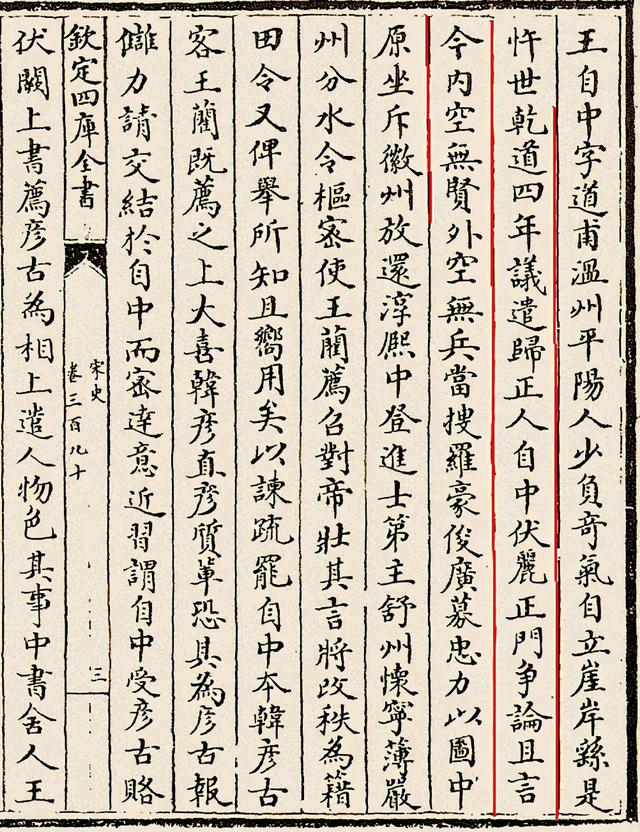 王自中字道甫溫州平陽人少負竒氣自立崖岸繇是
忤世乾道四年議遣歸正人自中伏麗正門爭論且言
今内空無賢外空無兵當搜羅豪俊廣募忠力以圖中
原坐斥徽州放還淳熈中登進士第主舒州懷寧薄嚴
州分水令樞宻使王藺薦召對帝壯其言將改秩為籍
田令又俾舉所知且嚮用矣以諫疏罷自中本韓彦古
客王藺既薦之上大喜韓彦直彦質軰恐其為彦古報
讎力請交結於自中而宻達意近習謂自中受彦古賂
欽定四庫全書
宋史
卷三百九十
三
伏闕上書薦彦古為相上遣人物色其事中書舍人王